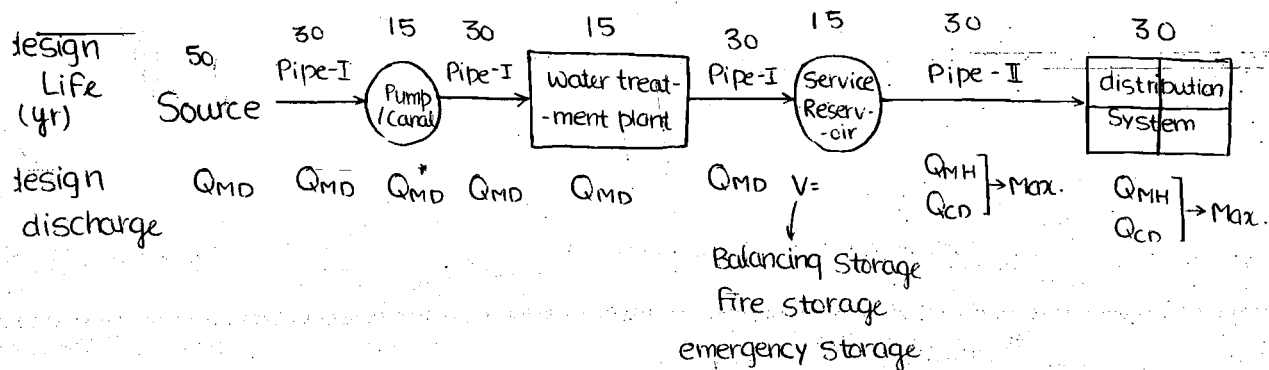 design Life (yr)
50 30 15 30 15 30 15 30 30
Source Pipe-I Pump /Canal Pipe-I water treat- -ment plant Pipe-I Service Reserv- -oir Pipe-II distribution System
design discharge
Q_MD Q_MD Q_MD* Q_MD Q_MD Q_MD V= Q_MH Q_CD → Max. Q_MH Q_CD → Max.
Balancing Storage
Fire storage
emergency storage